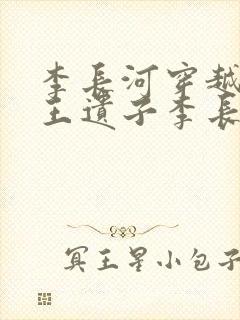 李長河穿越
王遺子李長
冥王星小包子